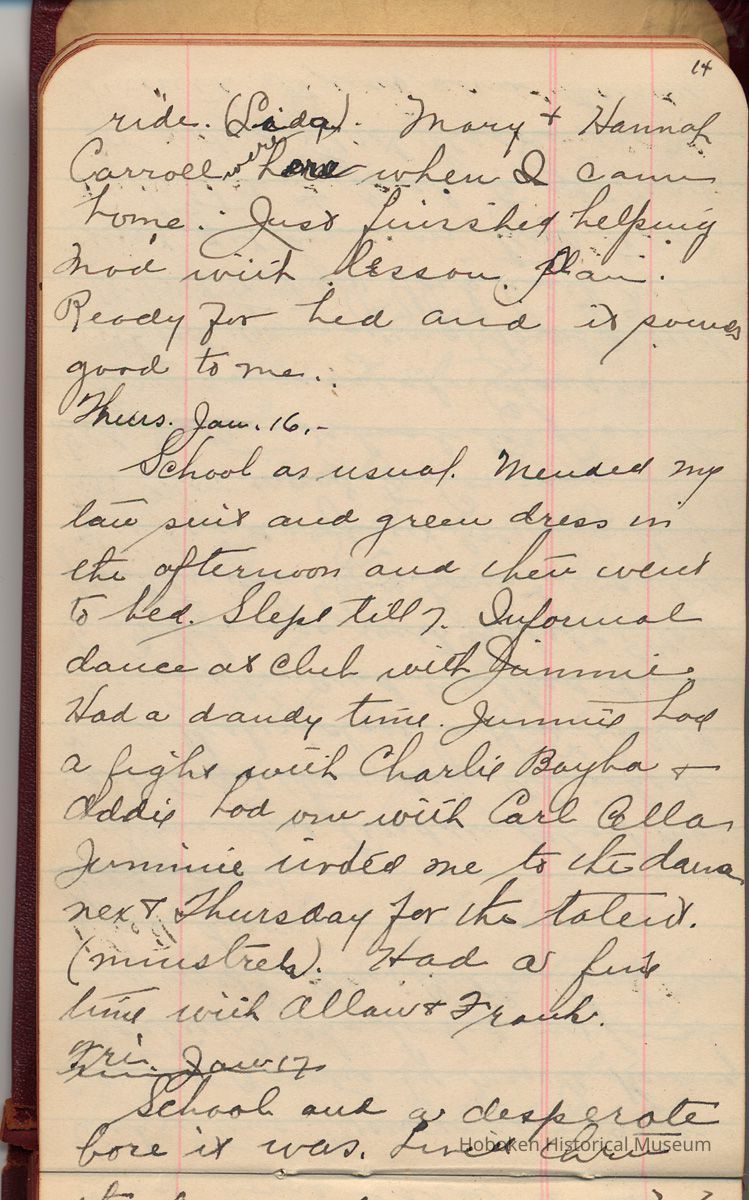 14
ride. (Lida). Mary + Hannah
Carroll were here when I came
home. Just finished helping
Mod with lesson plan.
Ready for bed and it sounds
good to me.
Thurs. Jan. 16.-
School as usual. Mended my
tan suit and green dress in
the afternoon and then went
to bed. Slept till 7. Informal
dance at club with Jimmie.
Had a dandy time. Jimmie had
a fight with Charlie Boyha +
Addie had one with Carl
Jimmie invited me to the dance
next Thursday for the talent.
(minstrels). Had a fine
time with Allan + Frank.
Fri. Jan 17
School and a desperate
bore it was.
Hoboken Historical Museum